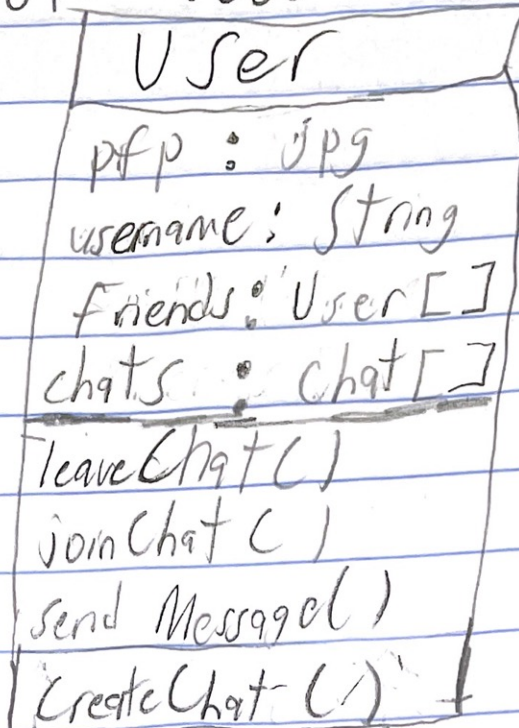 User
pfp : jpg
username: String
friends: User[]
chats : chat[]
leaveChat()
joinChat()
send Message()
CreateChat()